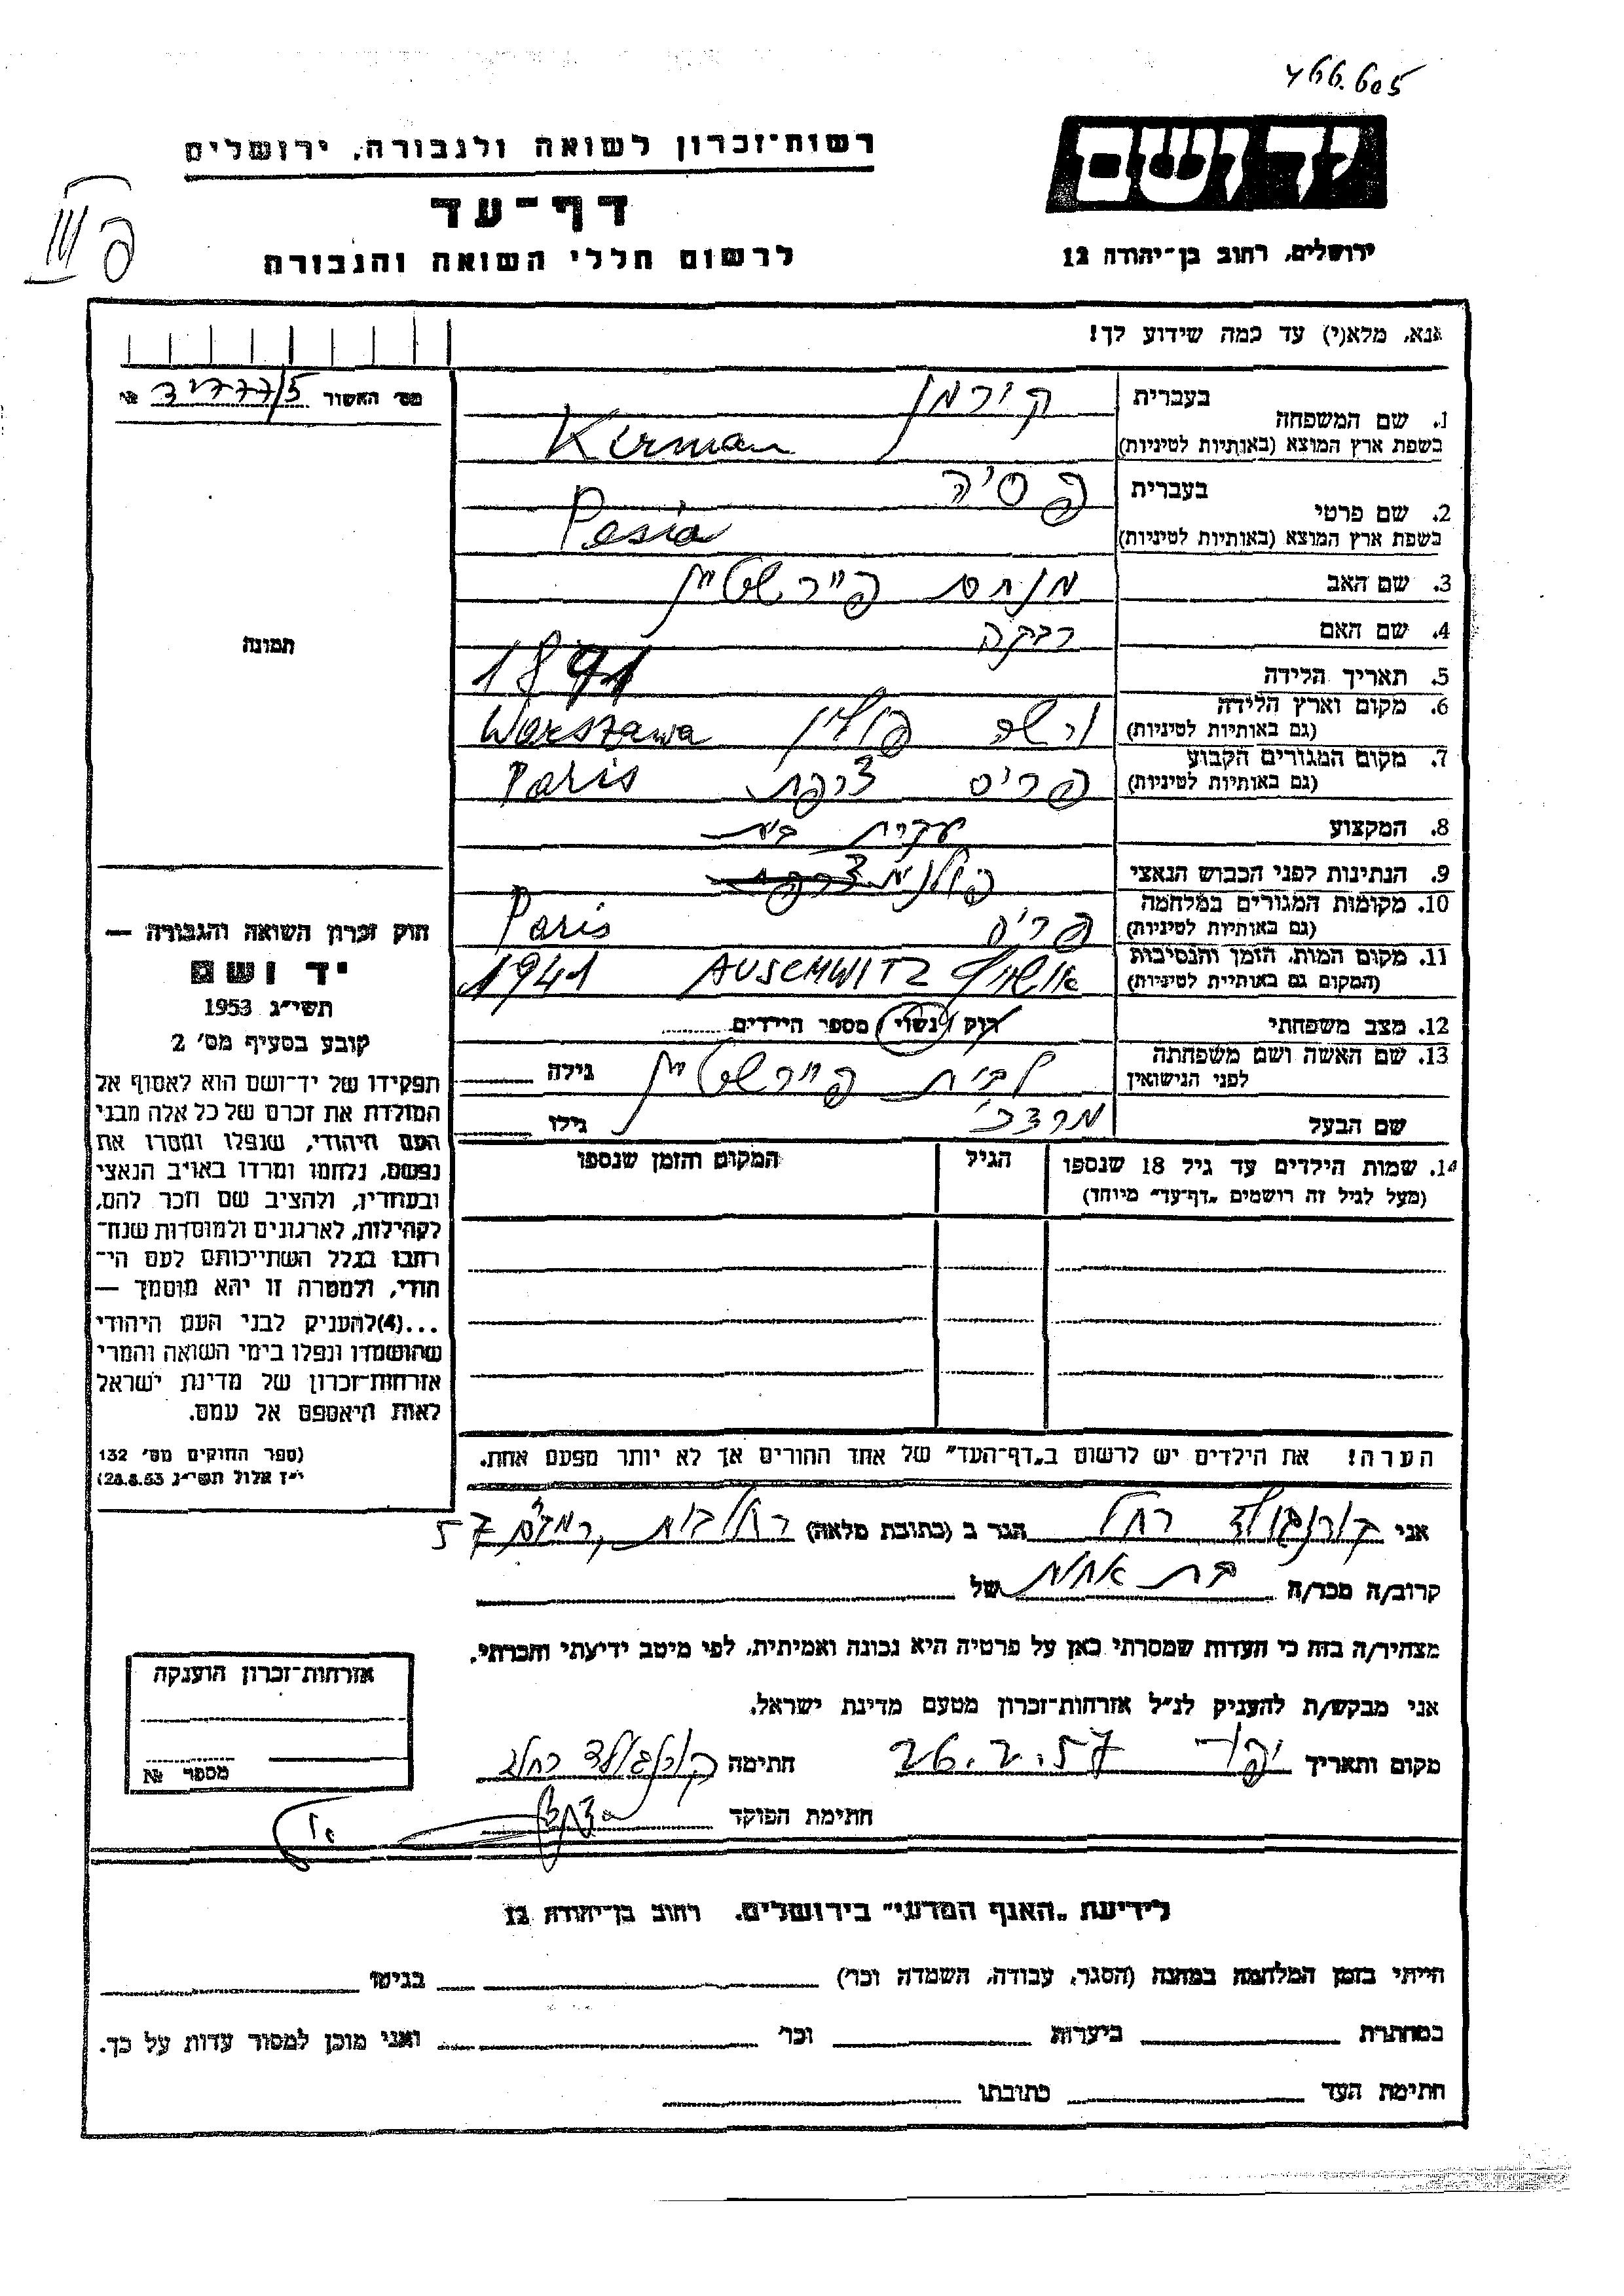 466.605
יד ושם
ירושלים, רחוב בן־יהודה 12
רשות־זכרון לשואה ולגבורה, ירושלים
דף־עד
לרשום חללי השואה והגבורה
פ III
אנא, מלא(י) עד כמה שידוע לך!
מס' האשור 5/ №
1. שם המשפחה
בעברית קירמן
בשפת ארץ המוצא (באותיות לטיניות) Kirman
2. שם פרטי
בעברית פסיה
בשפת ארץ המוצא (באותיות לטיניות) Pesia
3. שם האב מנחם פיירשטיין
4. שם האם רבקה
5. תאריך הלידה 1891
6. מקום וארץ הלידה ורשה פולין Warszawa
(גם באותיות לטיניות)
7. מקום המגורים הקבוע פריס צרפת Paris
(גם באותיות לטיניות)
8. המקצוע עקרת בית
9. הנתינות לפני הכבוש הנאצי פולנית צרפת
10. מקומות המגורים במלחמה פריס Paris
(גם באותיות לטיניות)
11. מקום המות, הזמן והנסיבות אושויץ AUSCHWITZ 1941
(המקום גם באותיות לטיניות)
12. מצב משפחתי רוק / נשוי / מספר הילדים
13. שם האשה ושם משפחתה לבית פיירשטיין גילה
לפני הנישואין
שם הבעל מרדכי גילו
14. שמות הילדים עד גיל 18 שנספו הגיל המקום והזמן שנספו
(מעל לגיל זה רושמים „דף־עד" מיוחד)
הערה! את הילדים יש לרשום ב„דף־העד" של אחד ההורים אך לא יותר מפעם אחת.
תמונה
חוק זכרון השואה והגבורה —
יד ושם
תשי"ג 1953
קובע בסעיף מס' 2
תפקידו של יד־ושם הוא לאסוף אל
המולדת את זכרם של כל אלה מבני
העם היהודי, שנפלו ומסרו את
נפשם, נלחמו ומרדו באויב הנאצי
ובעוזריו, ולהציב שם וזכר להם,
לקהילות, לארגונים ולמוסדות שנח־
רבו בגלל השתייכותם לעם הי־
הודי, ולמטרה זו יהא מוסמך —
...(4) להעניק לבני העם היהודי
שהושמדו ונפלו בימי השואה והמרי
אזרחות־זכרון של מדינת ישראל
לאות היאספם אל עמם.
(ספר החוקים מס' 132
י"ז אלול תשי"ג 28.8.53)
אני קורנגולד רחל הגר ב (כתובת מלאה) רחובות, רמב"ם 57
קרוב/ה מכר/ה בת אחות של
מצהיר/ה בזה כי העדות שמסרתי כאן על פרטיה היא נכונה ואמיתית, לפי מיטב ידיעתי והכרתי.
אני מבקש/ת להעניק לנ"ל אזרחות־זכרון מטעם מדינת ישראל.
מקום ותאריך יפו 26.2.57 חתימה קורנגולד רחל
חתימת הפוקד
אזרחות־זכרון הוענקה
מספר №
לידיעת „האגף המדעי" בירושלים, רחוב בן־יהודה 12
הייתי בזמן המלחמה במחנה (הסגר, עבודה, השמדה וכר') בגיטו
במחתרת ביערות וכר' ואני מוכן למסור עדות על כך.
חתימת העד כתובתו